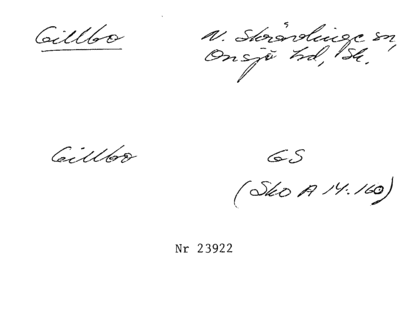 Gillbo N. Skrävlinge sn,
Onsjö hd, Sk.
Gillbo GS
(Sko A 14:160)
Nr 23922